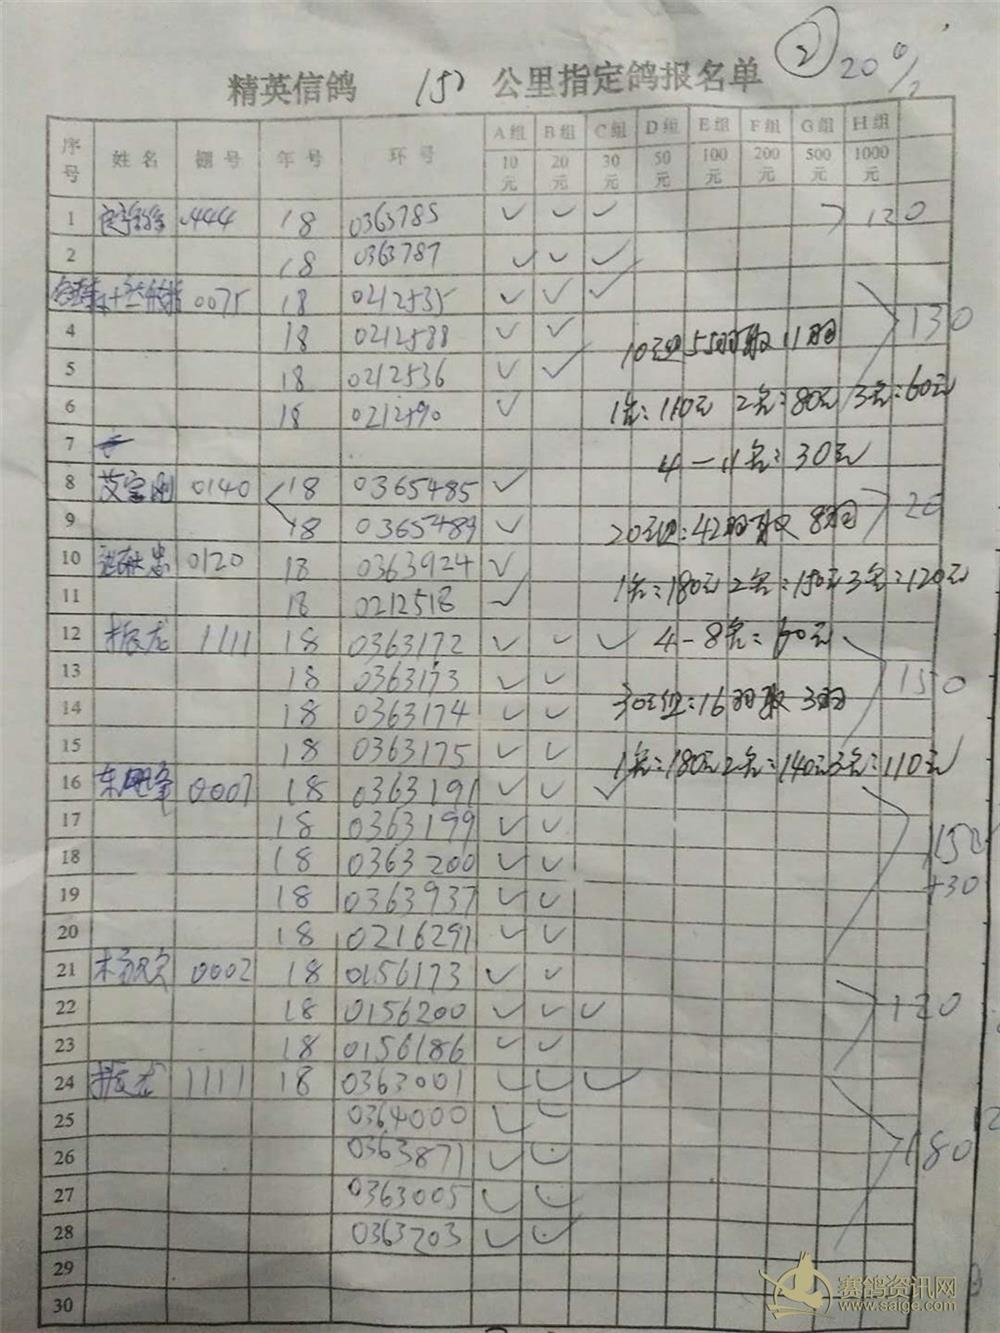 ② 20
精英信鸽 150 公里指定鸽报名单
序号 姓名 棚号 年号 环号 A组 B组 C组 D组 E组 F组 G组 H组
10元 20元 30元 50元 100元 200元 500元 1000元
1 444 18 0363785 ✓ ✓ ✓ 120
2 18 0363787 ✓ ✓ ✓
0075 18 0212535 ✓ ✓ ✓ 130
4 18 0212588 ✓ ✓
10元组55羽取11羽
5 18 0212536 ✓ ✓
6 18 0212490 ✓
1名:110元 2名:80元 3名:60元
7
4-11名:30元
8 艾宝刚 0140 18 0365485 ✓ 20
9 18 0365489 ✓
20元组:42羽取8羽
10 0120 18 0363924 ✓
11 18 0212518 ✓
1名:180元 2名:150元 3名:120元
12 振龙 1111 18 0363172 ✓ ✓ ✓
4-8名:60元
13 18 0363173 ✓ ✓ 150
14 18 0363174 ✓ ✓
30元组:16羽取3羽
15 18 0363175 ✓ ✓
1名:180元 2名:140元 3名:110元
16 0007 18 0363191 ✓ ✓ ✓
17 18 0363199 ✓ ✓ 150
18 18 0363200 ✓ ✓ +30
19 18 0363937 ✓ ✓
20 18 0216291 ✓ ✓
21 0002 18 0156173 ✓ ✓
22 18 0156200 ✓ ✓ ✓ 120
23 18 0156186 ✓ ✓
24 振龙 1111 18 0363001 ✓ ✓ ✓
25 0364000 ✓ ✓
26 0363871 ✓ ✓ 180
27 0363005 ✓ ✓
28 0363203 ✓ ✓
29
30
赛鸽资讯网
www.saige.com